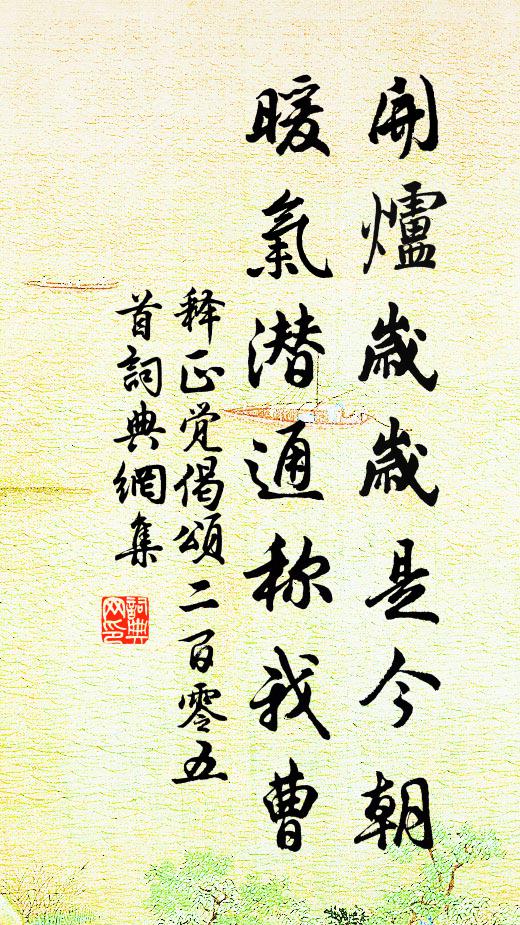 開爐歲歲是今朝
暖氣潜通称我曹
释正觉偈頌二百零五
首詞典網集
詞典網印